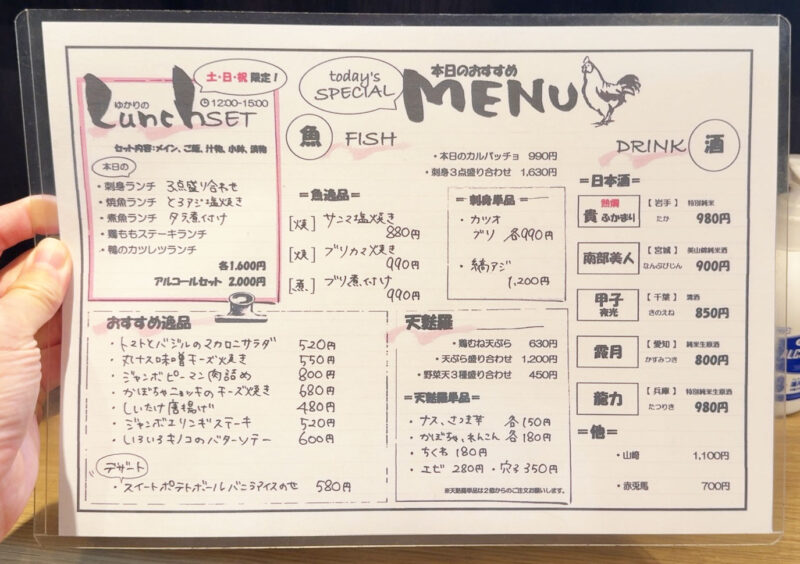 土・日・祝 限定！
ゆかりの
Lunch SET
12:00-15:00
セット内容:メイン、ご飯、汁物、小鉢、漬物
本日の
・刺身ランチ 3点盛り合わせ
・焼魚ランチ とろアジ塩焼き
・煮魚ランチ タラ煮付け
・鶏ももステーキランチ
・鴨のカツレツランチ
各1,600円
アルコールセット 2,000円
today's
SPECIAL
本日のおすすめ
MENU
魚 FISH
・本日のカルパッチョ 990円
・刺身3点盛り合わせ 1,630円
＝魚逸品＝
[焼] サンマ塩焼き
880円
[焼] ブリカマ焼き
990円
[煮] ブリ煮付け
990円
＝刺身単品＝
・カツオ
ブリ 各990円
・縞アジ
1,200円
DRINK 酒
＝日本酒＝
熱燗
貴 ふかまり
【岩手】 特別純米
たか 980円
南部美人
【宮城】 美山錦純米酒
なんぶびじん 900円
甲子
夜光
【千葉】 濁酒
きのえね 850円
霞月
【愛知】 純米生原酒
かすみつき 800円
龍力
【兵庫】 特別純米生原酒
たつりき 980円
＝他＝
・山崎 1,100円
・赤兎馬 700円
おすすめ逸品
・トマトとバジルのマカロニサラダ 520円
・丸ナス味噌チーズ焼き 550円
・ジャンボピーマン肉詰め 800円
・かぼちゃニョッキのチーズ焼き 680円
・しいたけ唐揚げ 480円
・ジャンボエリンギステーキ 520円
・いろいろキノコのバターソテー 600円
デザート
・スイートポテトボールバニラアイスのせ 580円
天麩羅
・鶏むね天ぷら 630円
・天ぷら盛り合わせ 1,200円
・野菜天3種盛り合わせ 450円
＝天麩羅単品＝
・ナス、さつま芋 各150円
・かぼちゃ、れんこん 各180円
・ちくわ 180円
・エビ 280円 ・穴子350円
※天麩羅単品は2個からのご注文お願いします。